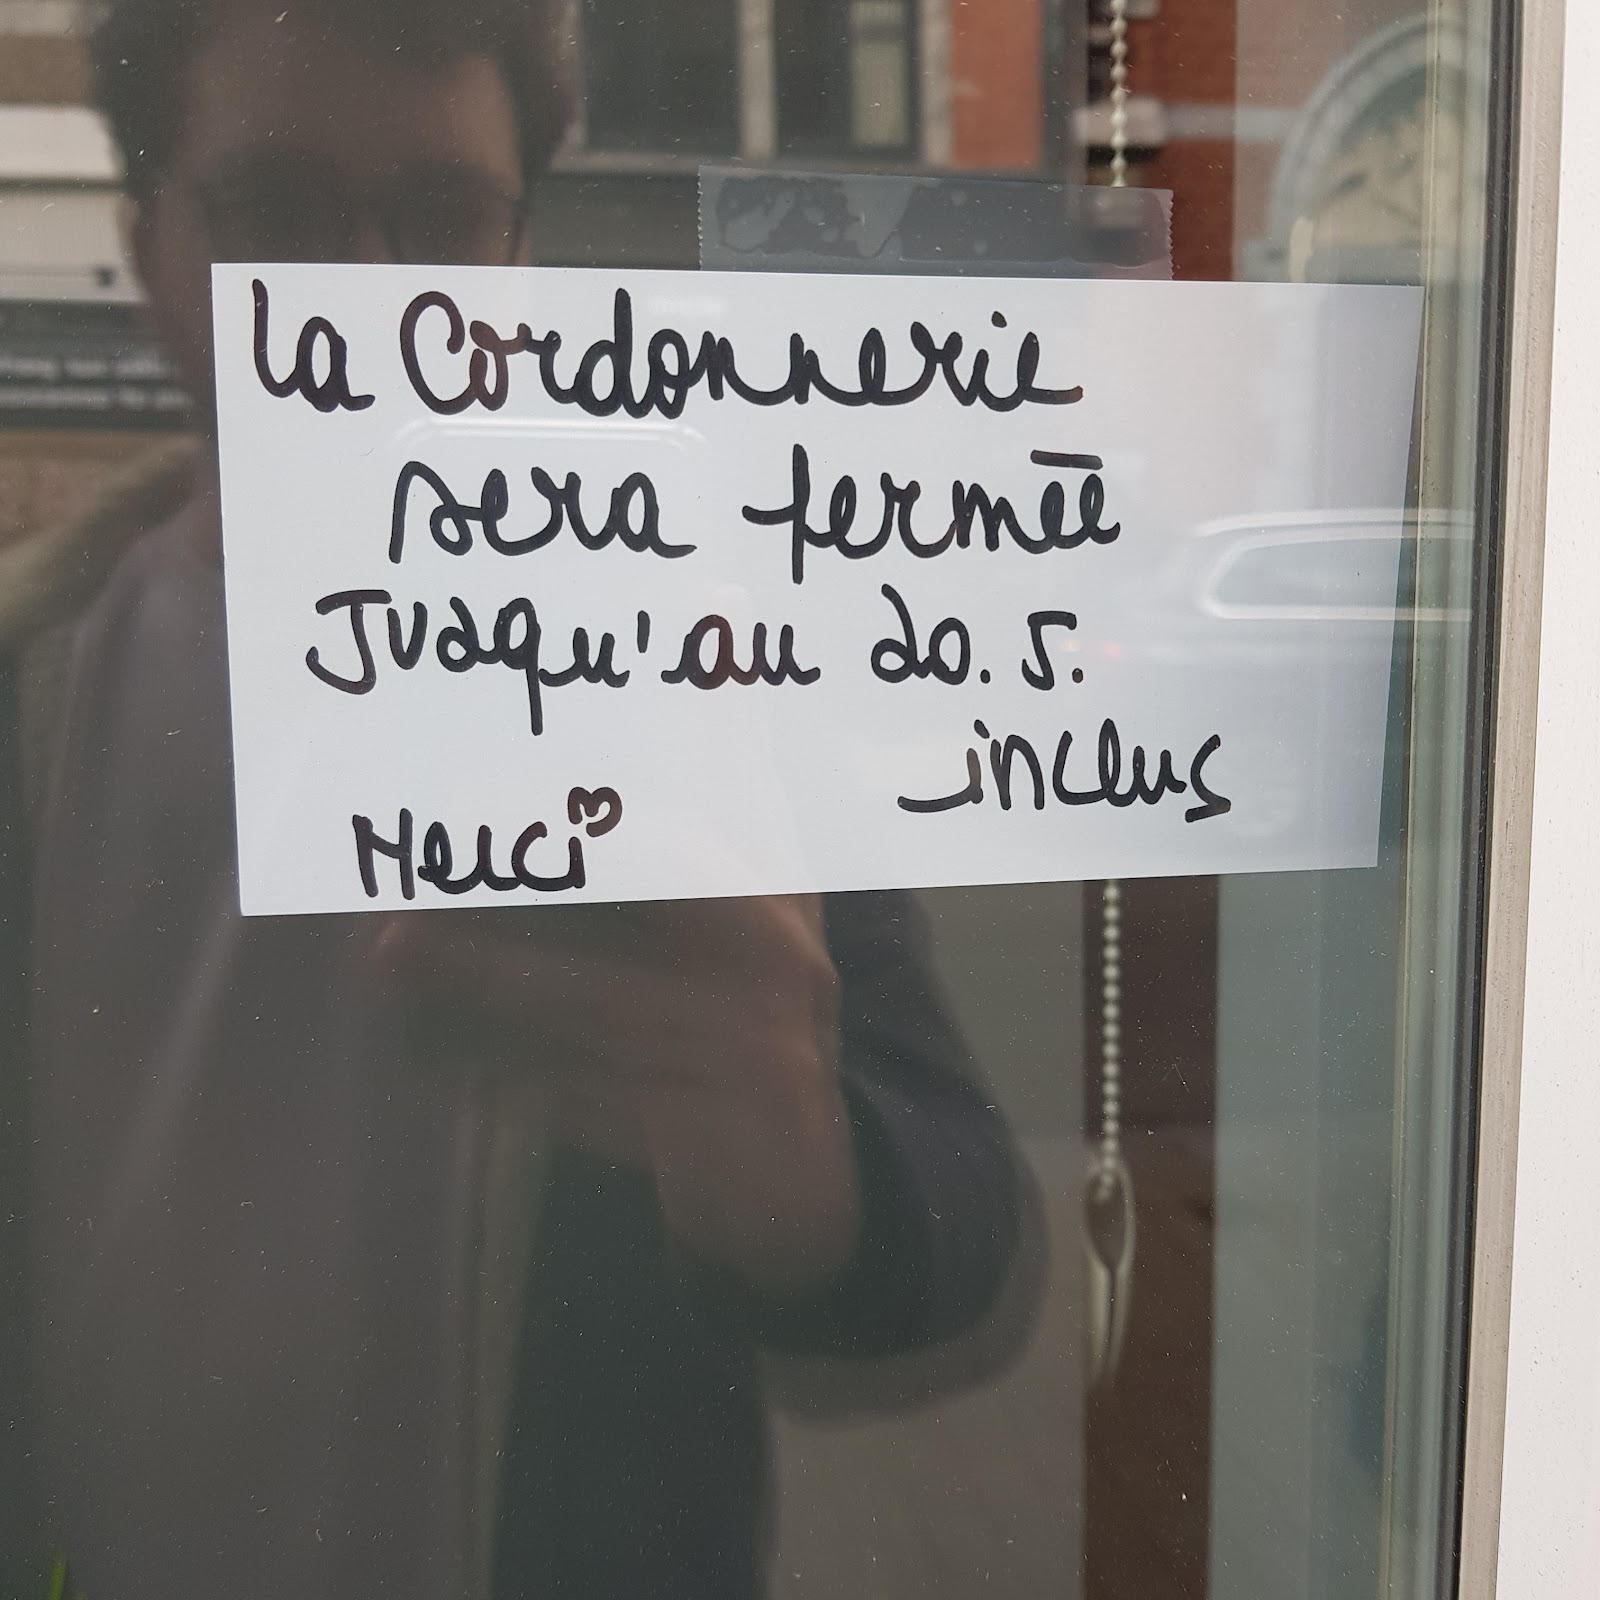 La Cordonnerie
sera fermée
Jusqu'au 20. 5.
inclus
Merci